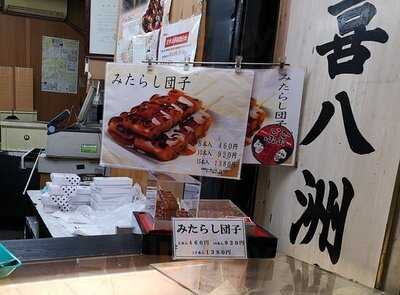 みたらし団子
5本入 460円
10本入 920円
15本入 1380円
みたらし団子
喜八洲
みたらし団子
5本入 460円 10本入 920円
15本入 1380円